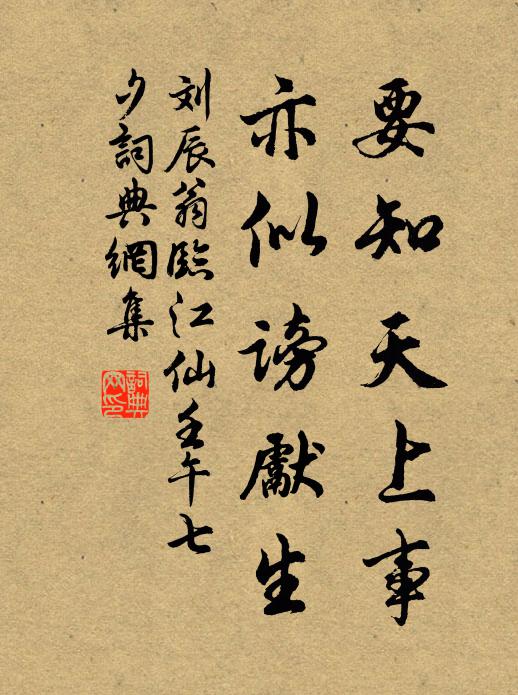 要知天上事
亦似謗獻生
刘辰翁臨江仙壬午七
夕詞典網集
詞典
网印